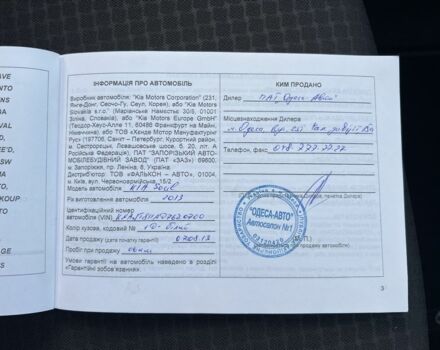 AVE
ENTO
ENS
AVAL
VE'D,
OSW
EZ
CKOUP
TO
ІНФОРМАЦІЯ ПРО АВТОМОБІЛЬ
Виробник автомобіля: "Kia Motors Corporation" (231,
Янге-Донг, Сеочо-Гу, Сеул, Корея), або "Kia Motors
Slovakia s.r.o." (Маріанське Намєстіє 30/5, 01001
Зіліна, Словакія), або "Kia Motors Europe GmbH"
(Теодор-Хеус-Алле 11, 60486 Франкфурт на Майні,
Німеччина), або ТОВ «Хенде Мотор Мануфактурінг
Рус" (197706, Санкт – Петербург, Курортний район,
м. Сестрорецьк, Левашовське шосе, б. 20, літ. А,
Російська Федерація), ПАТ "ЗАПОРІЗЬКИЙ АВТО-
МОБІЛЕБУДІВНИЙ ЗАВОД" (ПАТ «ЗАЗ») 69600,
м. Запоріжжя, пр. Леніна, 8, Україна.
Дистриб'ютор: ТОВ «ФАЛЬКОН – АВТО», 01004,
м. Київ, вул. Червоноармійська, 15/2
Модель автомобіля KIA Soul
Рік виготовлення автомобіля 2013
Ідентифікаційний номер
автомобіля (VIN)
Колір кузова, кодовий № 1D- білий
Дата продажу (дата початку гарантії) 07.08.13
Пробіг при продажу
Умови гарантії на автомобіль наведено в розділі
«Гарантійні зобов'язання».
КИМ ПРОДАНО
Дилер ПАТ „Одеса-Авто"
Місцезнаходження Дилера
м. Одеса,
Телефон, факс 048 777-77-77
"ОДЕСА-АВТО"
Автосалон №1
03120429
(М.П.)
3